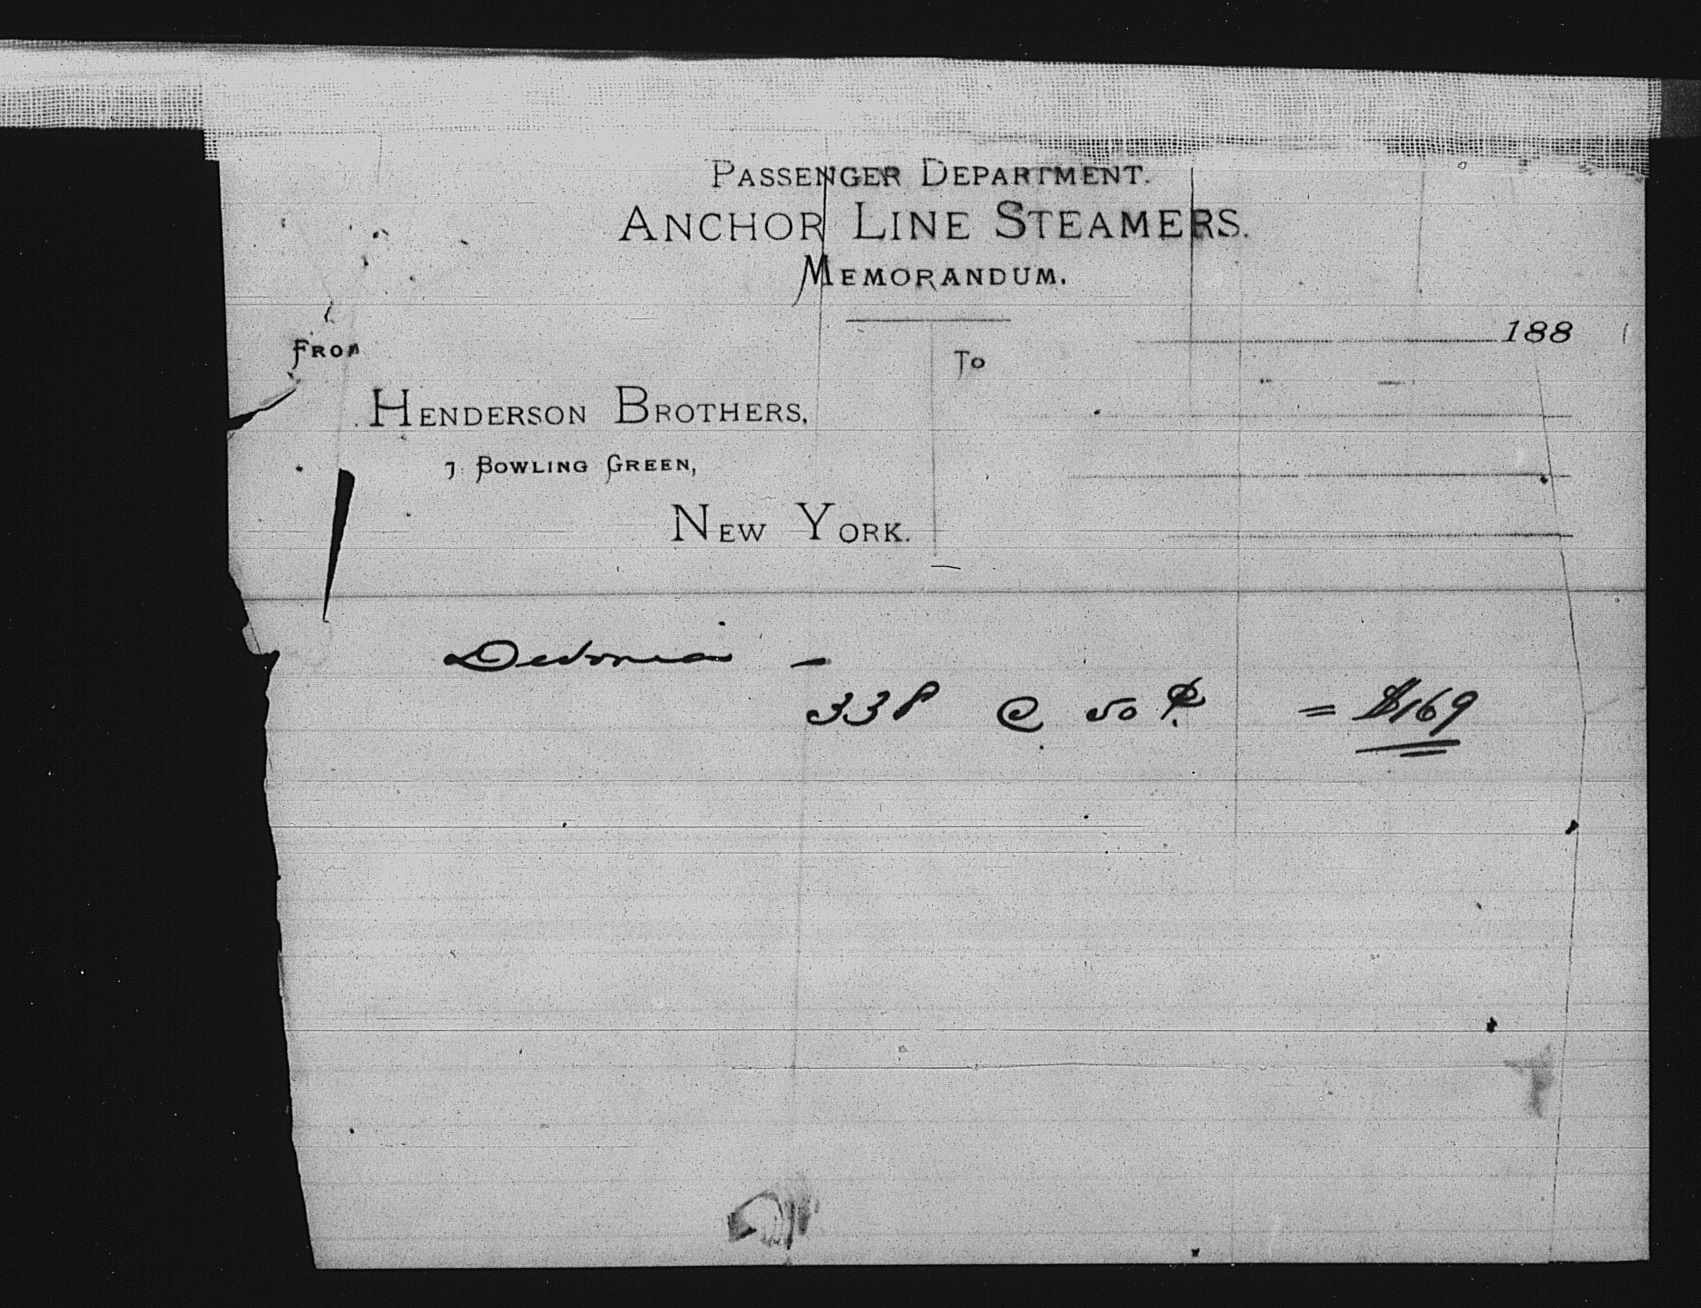 PASSENGER DEPARTMENT.
ANCHOR LINE STEAMERS.
MEMORANDUM.
188
FROM
To
HENDERSON BROTHERS,
7 BOWLING GREEN,
NEW YORK.
Devonia -
338 @ 50 ¢. = $169